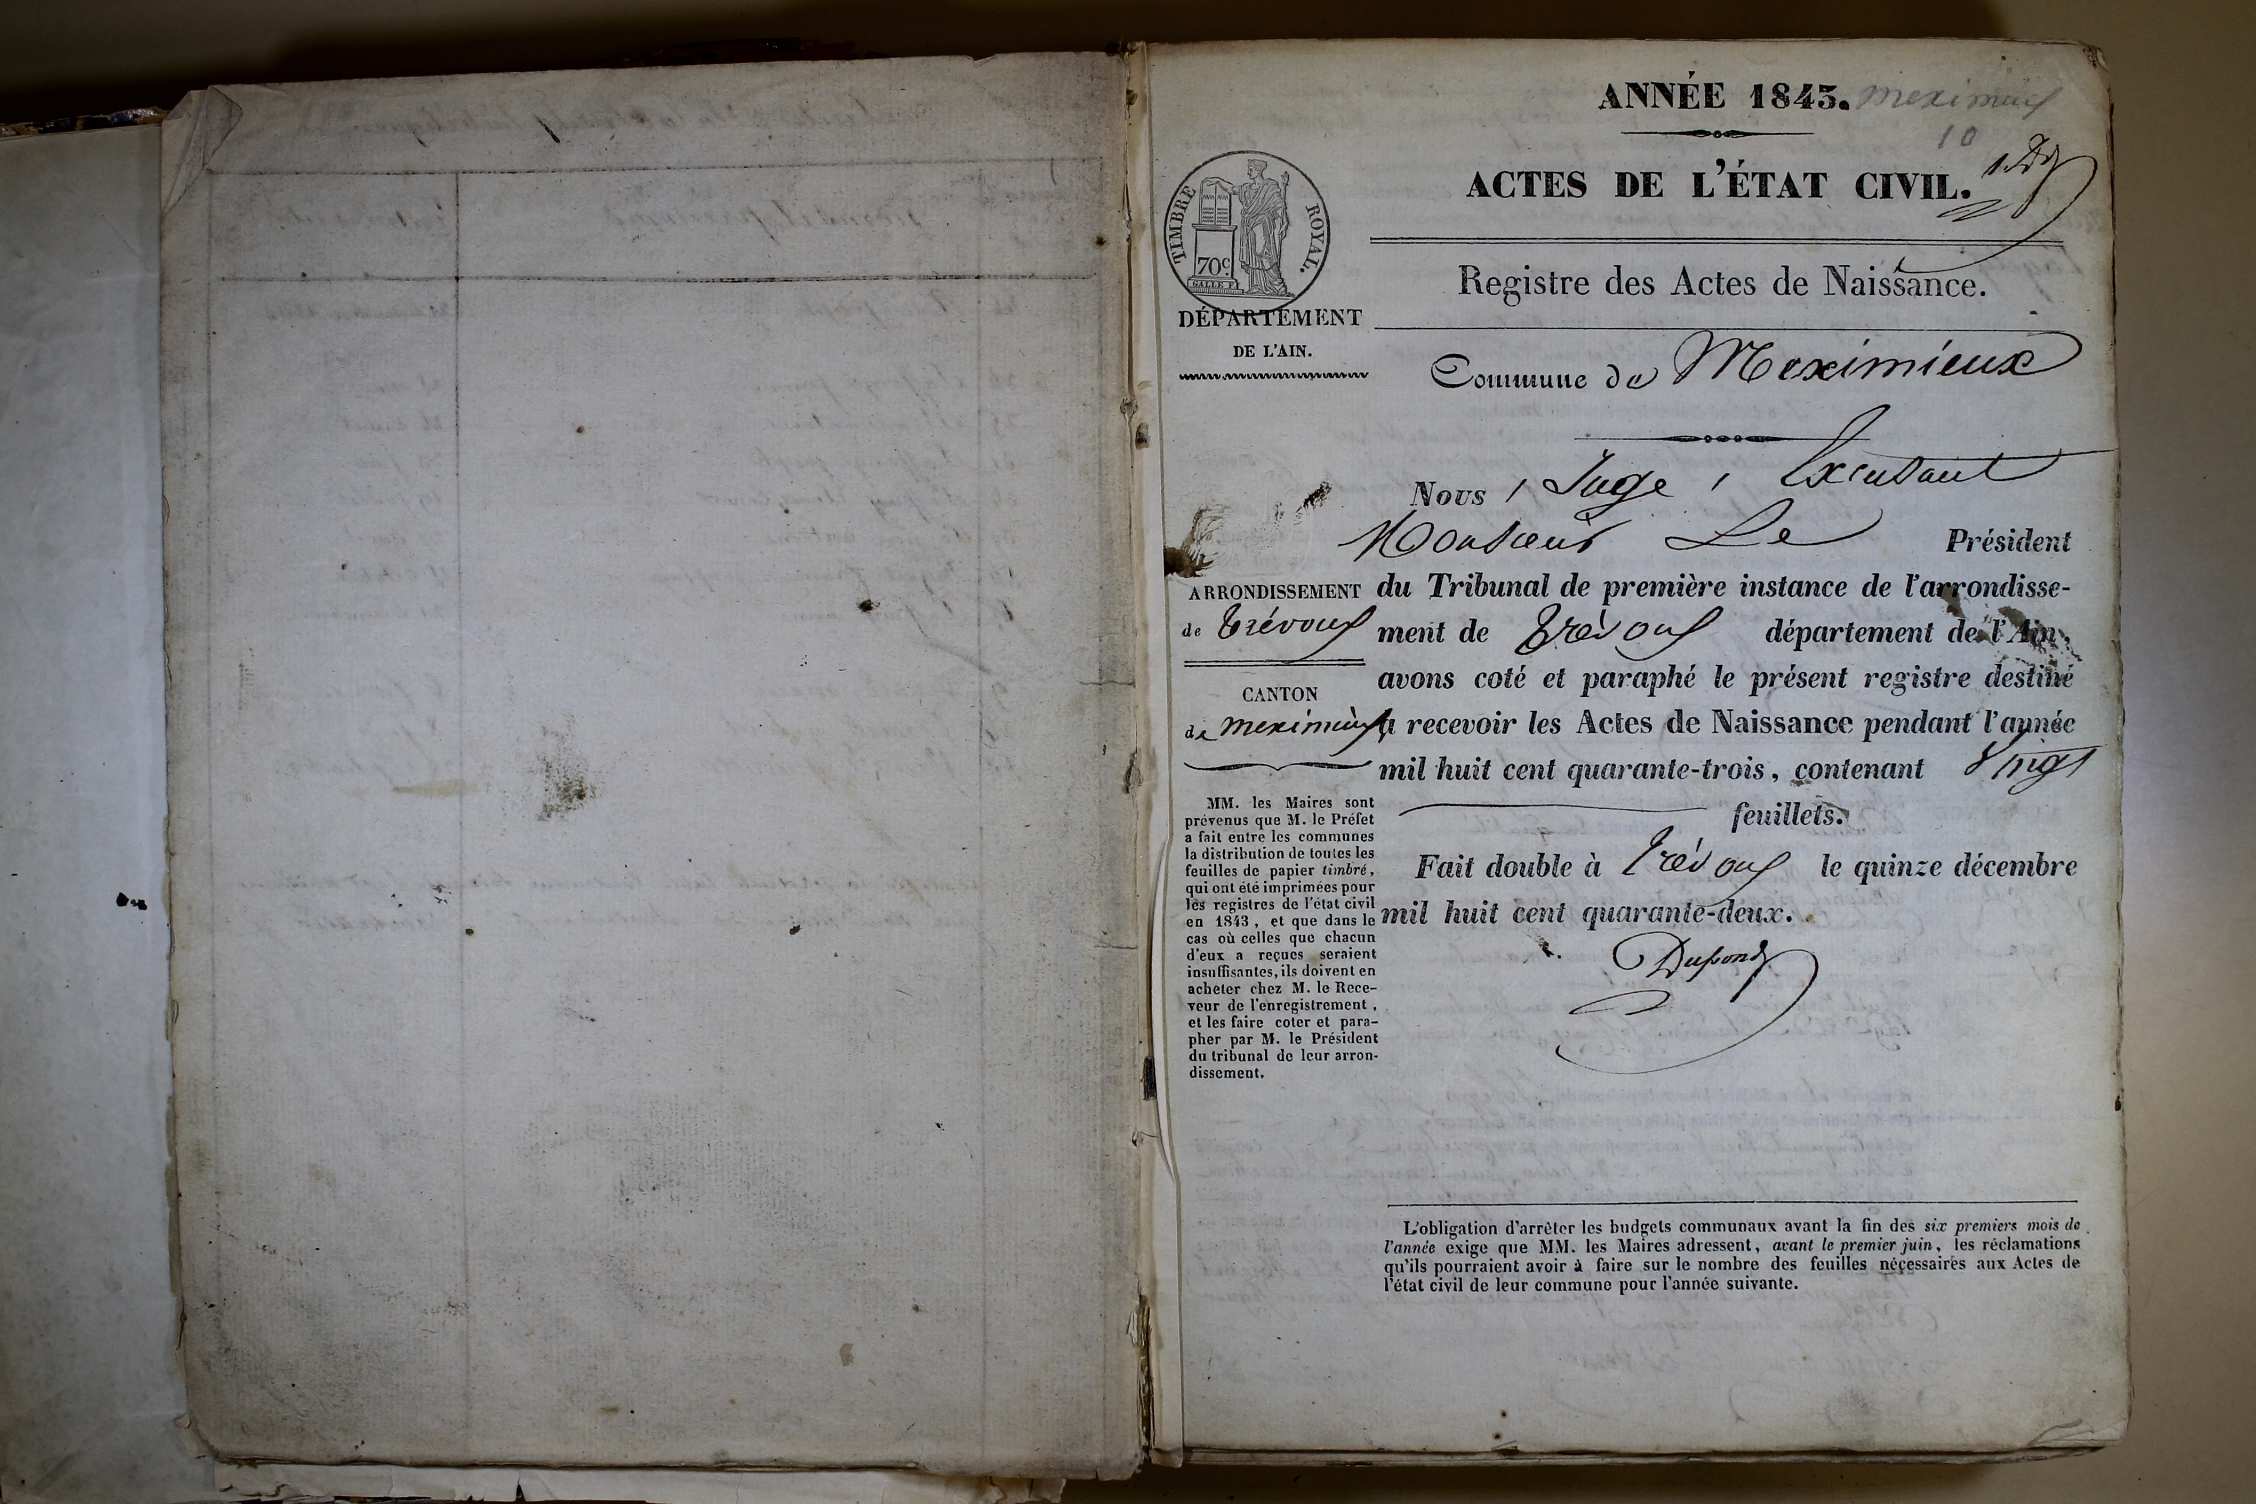 ANNÉE 1843. meximieux
10
ACTES DE L'ÉTAT CIVIL.
TIMBRE ROYAL.
70c.
Registre des Actes de Naissance.
DÉPARTEMENT
DE L'AIN.
Commune de Meximieux
Nous, Juge, Excusant
Monsieur Le Président
ARRONDISSEMENT
de Trévoux
CANTON
de meximieux
MM. les Maires sont
prévenus que M. le Préfet
a fait entre les communes
la distribution de toutes les
feuilles de papier timbré,
qui ont été imprimées pour
les registres de l'état civil
en 1843, et que dans le
cas où celles que chacun
d'eux a reçues seraient
insuffisantes, ils doivent en
acheter chez M. le Rece-
veur de l'enregistrement,
et les faire coter et para-
pher par M. le Président
du tribunal de leur arron-
dissement.
du Tribunal de première instance de l'arrondisse-
ment de Trévoux département de l'Ain,
avons coté et paraphé le présent registre destiné
à recevoir les Actes de Naissance pendant l'année
mil huit cent quarante-trois, contenant Vingt
feuillets.
Fait double à Trévoux le quinze décembre
mil huit cent quarante-deux.
Dupond
L'obligation d'arrêter les budgets communaux avant la fin des six premiers mois de
l'année exige que MM. les Maires adressent, avant le premier juin, les réclamations
qu'ils pourraient avoir à faire sur le nombre des feuilles nécessaires aux Actes de
l'état civil de leur commune pour l'année suivante.